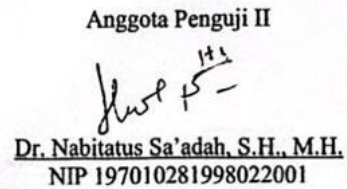 Anggota Penguji II
Dr. Nabitatus Sa'adah, S.H., M.H.
NIP 197010281998022001